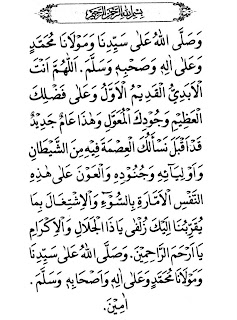 بِسْمِ اللهِ الرَّحْمٰنِ الرَّحِيْمِ
وَصَلَّى اللهُ عَلٰى سَيِّدِنَا وَمَوْلَانَا مُحَمَّدٍ
وَعَلٰى اٰلِهِ وَصَحْبِهِ وَسَلَّمَ. اَللّٰهُمَّ اَنْتَ
الْاَبَدِيُّ الْقَدِيْمُ الْاَوَّلُ وَعَلٰى فَضْلِكَ
الْعَظِيْمِ وَجُوْدِكَ الْمُعَوَّلِ وَهٰذَا عَامٌ جَدِيْدٌ
قَدْ اَقْبَلَ نَسْأَلُكَ الْعِصْمَةَ فِيْهِ مِنَ الشَّيْطَانِ
وَاَوْلِيَائِهِ وَجُنُوْدِهِ وَالْعَوْنَ عَلٰى هٰذِهِ
النَّفْسِ الْاَمَّارَةِ بِالسُّوْءِ وَالْاِشْتِغَالَ بِمَا
يُقَرِّبُنَا اِلَيْكَ زُلْفٰى يَا ذَا الْجَلَالِ وَالْاِكْرَامِ
يَا اَرْحَمَ الرَّاحِمِيْنَ. وَصَلَّى اللهُ عَلٰى سَيِّدِنَا
وَمَوْلَانَا مُحَمَّدٍ وَعَلٰى اٰلِهِ وَاَصْحَابِهِ وَسَلَّمَ.
اٰمِيْنَ.